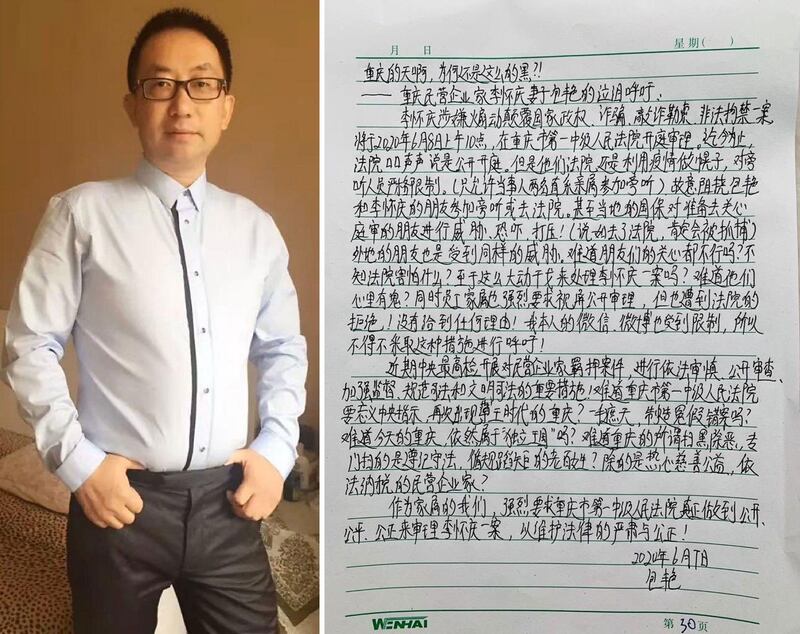 月 日 星期( )
重庆的天啊,为何还是这么的黑?!
—— 重庆民营企业家李怀庆妻子包艳的泣泪呼吁.
李怀庆涉嫌煽动颠覆国家政权、诈骗、敲诈勒索、非法拘禁一案
将于2020年6月8日上午10点,在重庆市第一中级人民法院开庭审理。迄今为止,
法院口口声声说是公开开庭。但是他们法院还是利用疫情做幌子,对旁
听人员严格限制。(只允许当事人两名直系亲属参加旁听)故意阻挠包艳
和李怀庆的朋友参加旁听或去法院。甚至当地的国保对准备去关心
庭审的朋友进行威胁、恐吓、打压!(说如去了法院,肯定会被抓捕)
外地的朋友也是受到同样的威胁,难道朋友们的关心都不行吗?不
知法院害怕什么?至于这么大动干戈来处理李怀庆一案吗?难道他们
心里有鬼?同时员工家属也强烈要求视屏公开审理,但也遭到法院的
拒绝!没有给到任何理由!我本人的微信、微博也受到限制,所以
不得不采取这种措施进行呼吁!
近期中央最高检开展对民营企业家羁押案件,进行依法审慎、公开审查、
加强监督、规范司法和文明司法的重要措施!难道重庆市第一中级人民法院
要忘义中央指示,再次出现薄王时代的重庆?一手遮天,制造冤假错案吗?
难道今天的重庆,依然属于"独立王国"吗?难道重庆的所谓扫黑除恶,专
门扫的是遵纪守法,循规蹈矩的老百姓?除的是热心慈善公益,依
法纳税的民营企业家?
作为家属的我们,强烈要求重庆市第一中级人民法院真正做到公开、
公平、公正来审理李怀庆一案,以维护法律的严肃与公正!
2020年6月7日
包艳
WENHAI 第30页